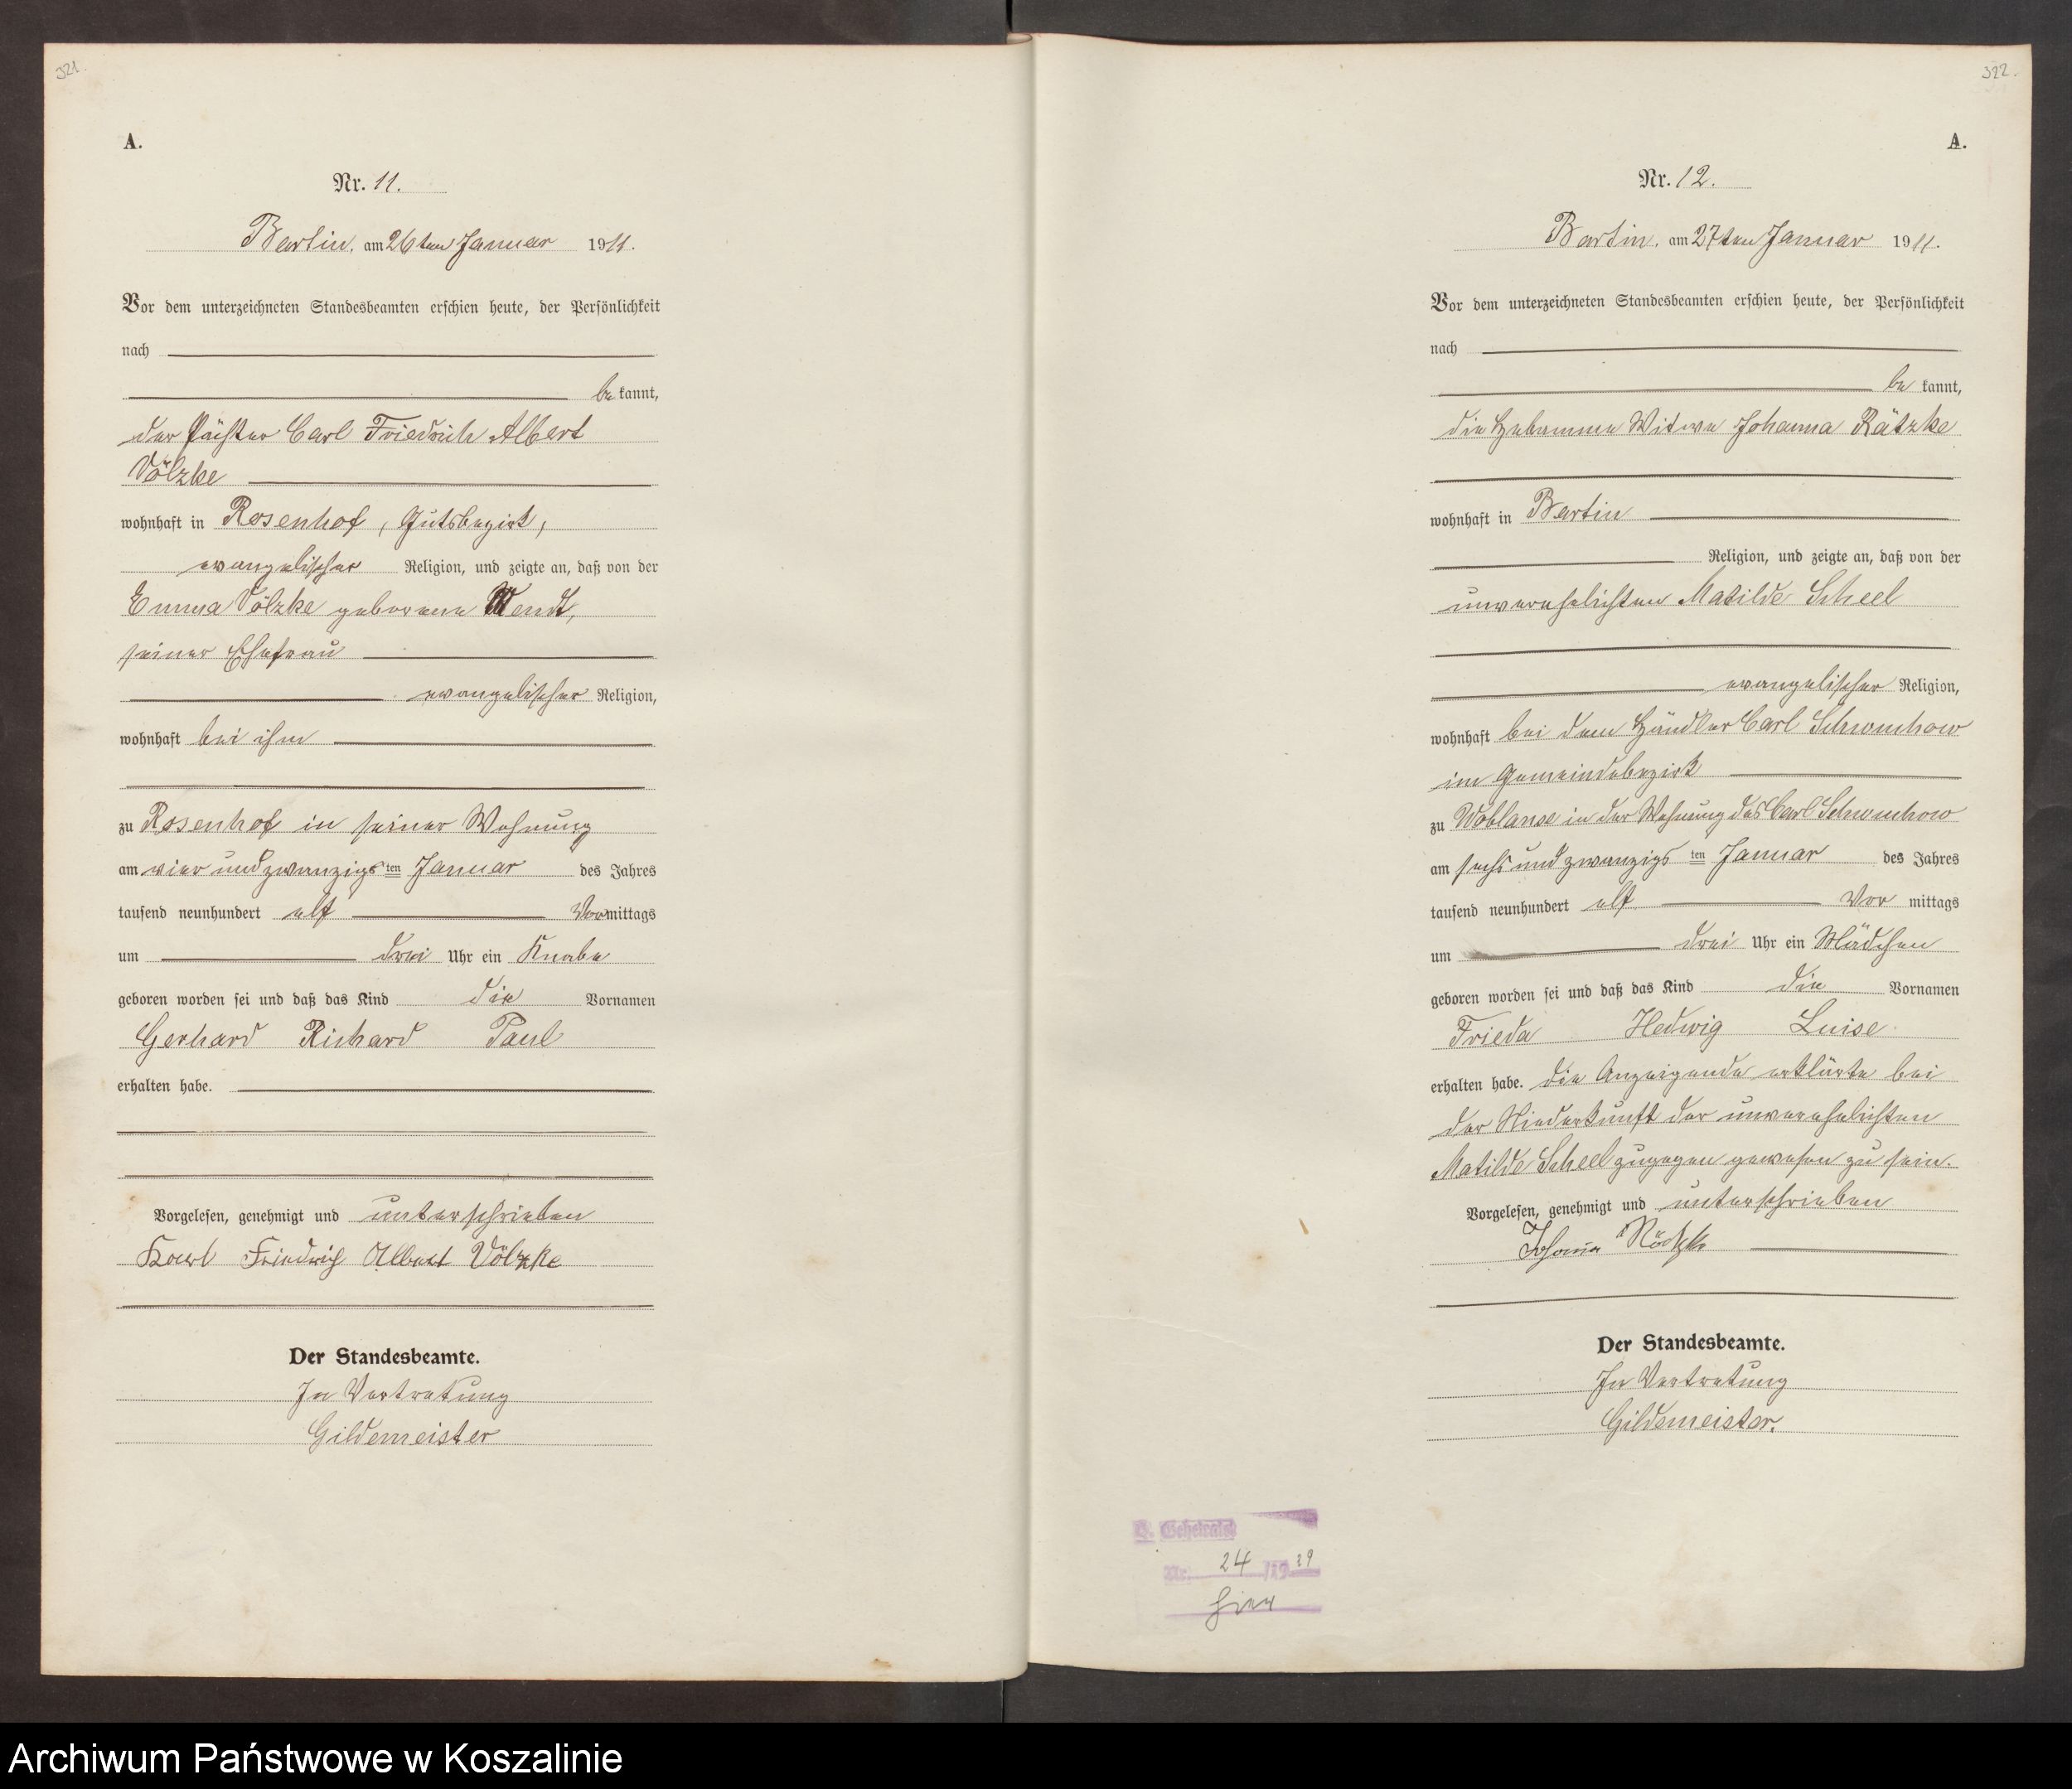 321.
A.
Nr. 11.
Bartin, am 26ten Januar 1911.
Vor dem unterzeichneten Standesbeamten erschien heute, der Persönlichkeit
nach
bekannt,
der Pächter Carl Friedrich Albert
Völzke
wohnhaft in Rosenhof, Gutsbezirk,
evangelischer Religion, und zeigte an, daß von der
Emma Völzke geborene Wendt,
seiner Ehefrau
evangelischer Religion,
wohnhaft bei ihm
zu Rosenhof in seiner Wohnung
am vier und zwanzigsten Januar des Jahres
tausend neunhundert elf Vormittags
um drei Uhr ein Knabe
geboren worden sei und daß das Kind die Vornamen
Gerhard Richard Paul
erhalten habe.
Vorgelesen, genehmigt und unterschrieben
Karl Friedrich Albert Völzke
Der Standesbeamte.
In Vertretung
Gildemeister
322.
A.
Nr. 12.
Bartin, am 27ten Januar 1911.
Vor dem unterzeichneten Standesbeamten erschien heute, der Persönlichkeit
nach
bekannt,
die Hebamme Witwe Johanna Rätzke
wohnhaft in Bartin
Religion, und zeigte an, daß von der
unverehelichten Matilde Scheel
evangelischer Religion,
wohnhaft bei dem Händler Carl Schwuchow
im Gemeindebezirk
zu Woblanse in der Wohnung des Carl Schwuchow
am sechs und zwanzigsten Januar des Jahres
tausend neunhundert elf Vormittags
um drei Uhr ein Mädchen
geboren worden sei und daß das Kind die Vornamen
Frieda Hedwig Luise
erhalten habe. Die Anzeigende erklärte bei
der Niederkunft der unverehelichten
Matilde Scheel zugegen gewesen zu sein.
Vorgelesen, genehmigt und unterschrieben
Johanna Rätzke
Der Standesbeamte.
In Vertretung
Gildemeister.
Nr. 24 /1929
hier
Archiwum Państwowe w Koszalinie